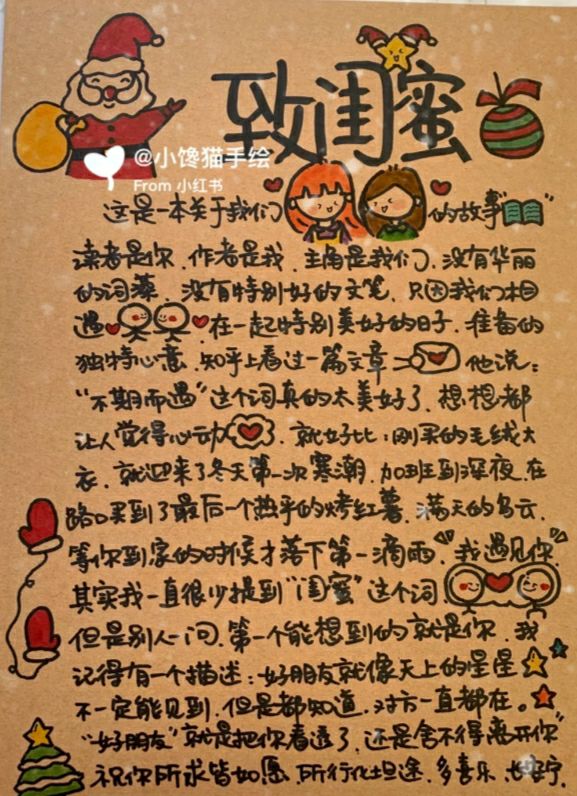 致闺蜜
@小馋猫手绘
From 小红书
这是一本关于我们的故事
读者是你.作者是我.主角是我们.没有华丽
的词藻.没有特别好的文笔.只因我们相
遇 在一起特别美好的日子.准备的
独特心意.知乎上看过一篇文章 他说:
"不期而遇"这个词真的太美好了.想想都
让人觉得心动 .就好比:刚买的毛绒大
衣.就迎来了冬天第一次寒潮.加班到深夜.在
路口买到了最后一个热乎的烤红薯.满天的乌云.
等你到家的时候才落下第一滴雨."我遇见你"
其实我一直很少提到"闺蜜"这个词
但是别人一问.第一个能想到的就是你.我
记得有一个描述:好朋友就像天上的星星
不一定能见到.但是都知道.对方一直都在。
"好朋友"就是把你看透了.还是舍不得离开你"
祝你所求皆如愿.所行化坦途.多喜乐.长安宁.